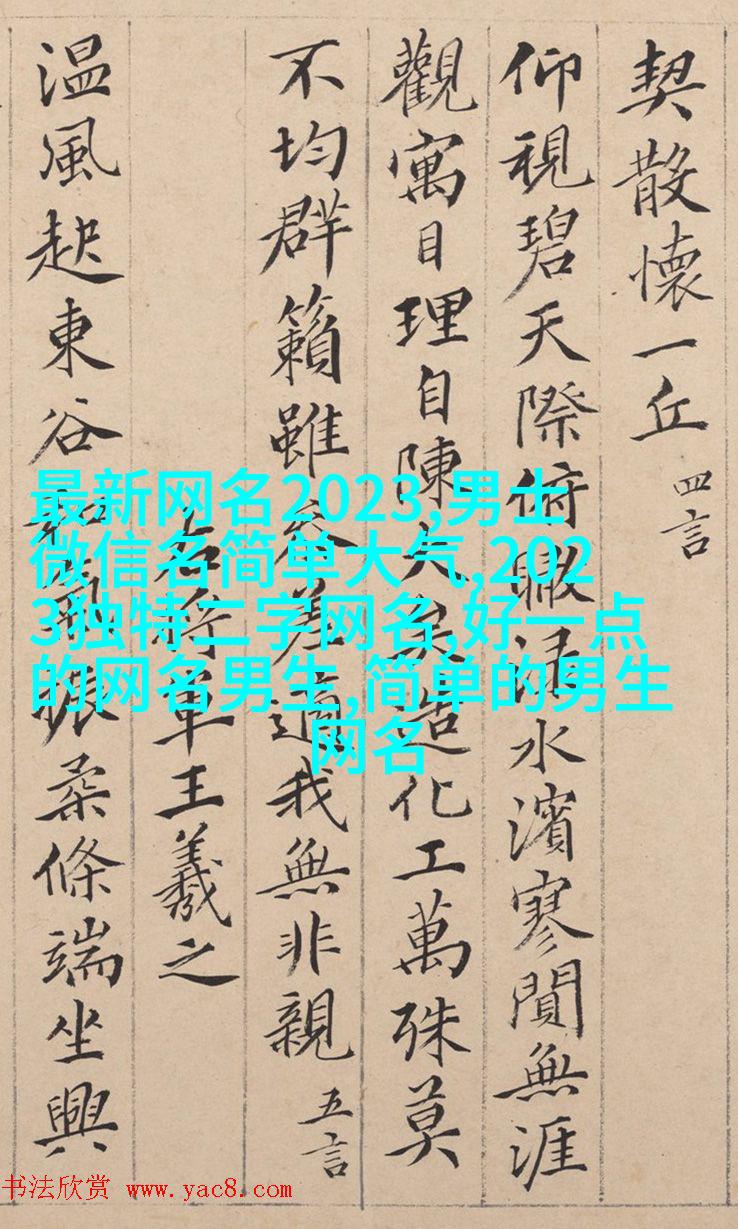 契散懷一丘 四言
仰視碧天際俯瞰淥水濱寥閴無涯
觀寓目理自陳大矣造化工萬殊莫
不均群籟雖參差適我無非親 五言
右將軍王羲之
温風起東谷和氣振柔條端坐興
最新网名2023,男士
微信名简单大气,202
3独特二字网名,好一点
的网名男生,简单的男生
网名
书法欣赏 www.yac8.com